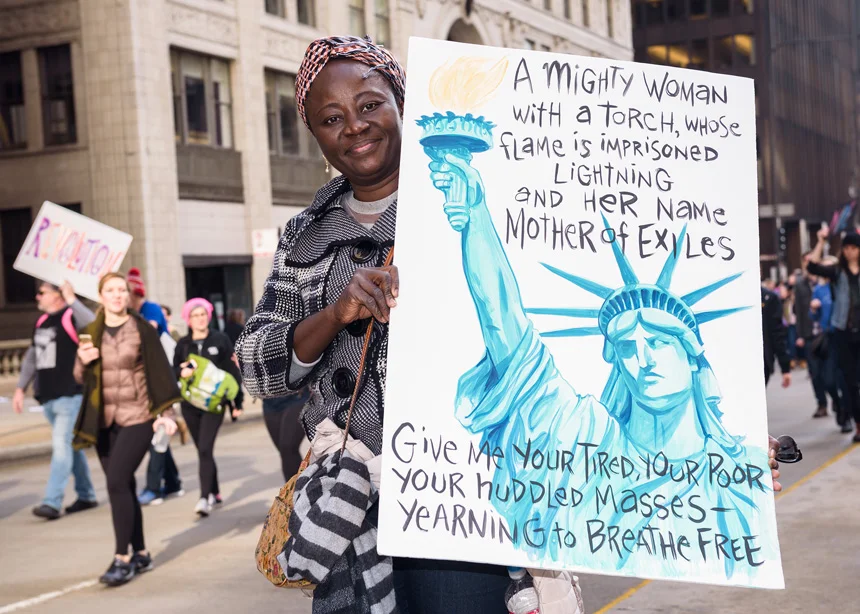 A MIGHTY WOMAN
WITH A TORCH, WHOSE
FLAME IS IMPRISONED
LIGHTNING
AND HER NAME
MOTHER of EXILES
GIVE ME YOUR TIRED, YOUR POOR
YOUR HUDDLED MASSES—
YEARNING to BREATHE FREE
REVOLUTION